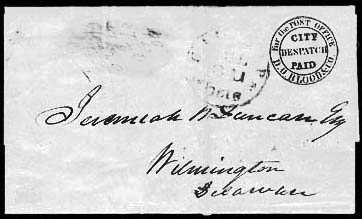 for the POST OFFICE
CITY
DESPATCH
PAID
D.O. BLOOD & CO.
Jeremiah W Duncan Esq
Wilmington
Delaware